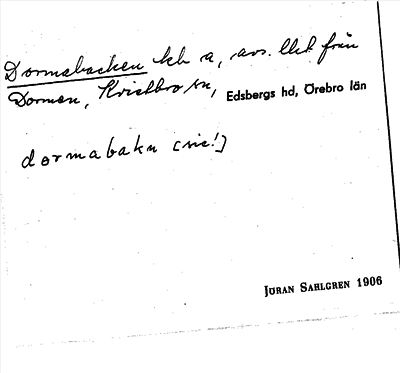 Dormabacken lkh a, avs. lht från
Dormen, Kvistbro sn, Edsbergs hd, Örebro län
dormabakn [sic!]
Jöran Sahlgren 1906